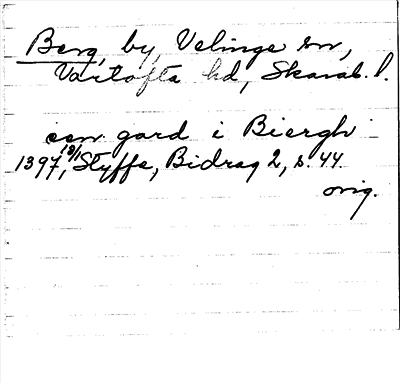 Berg, by, Velinge sn,
Vartofta hd, Skarab. l.
een gard i Biergh
1397 13/1, Styffe, Bidrag 2, s. 44.
orig.